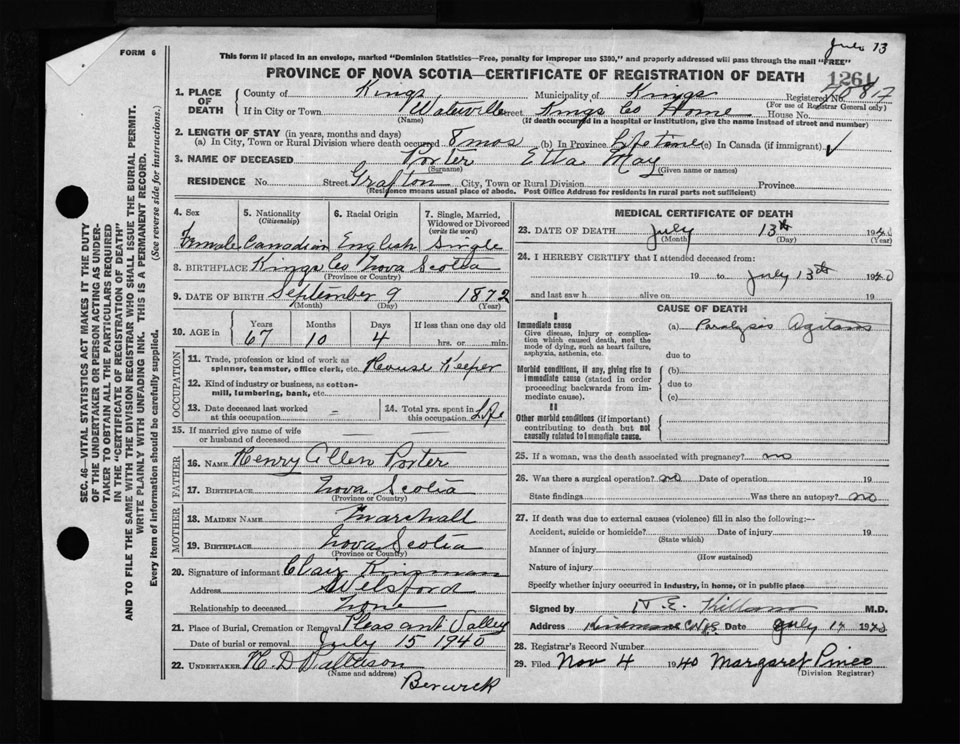 July 13
FORM 6
This form if placed in an envelope, marked "Dominion Statistics—Free, penalty for improper use $300," and properly addressed will pass through the mail "FREE"
PROVINCE OF NOVA SCOTIA—CERTIFICATE OF REGISTRATION OF DEATH
1261
1. PLACE OF DEATH
County of Kings Municipality of Kings Registered No.
(For use of Registrar General only)
If in City or Town Waterville Street Kings Co Home House No.
(Name) (If death occurred in a hospital or institution, give the name instead of street and number)
2. LENGTH OF STAY (in years, months and days)
(a) In City, Town or Rural Division where death occurred 8 mos (b) In Province Life time (c) In Canada (if immigrant) ✓
3. NAME OF DECEASED Porter Etta May
(Surname) (Given name or names)
RESIDENCE No. Street Grafton City, Town or Rural Division Province
(Residence means usual place of abode. Post Office Address for residents in rural parts not sufficient)
4. Sex 5. Nationality (Citizenship) 6. Racial Origin 7. Single, Married, Widowed or Divorced (write the word)
Female Canadian English Single
8. BIRTHPLACE Kings Co Nova Scotia
(Province or Country)
9. DATE OF BIRTH September 9 1872
(Month) (Day) (Year)
10. AGE in Years Months Days If less than one day old
67 10 4 hrs. or min.
OCCUPATION
11. Trade, profession or kind of work as spinner, teamster, office clerk, etc. House Keeper
12. Kind of industry or business, as cotton-mill, lumbering, bank, etc.
13. Date deceased last worked at this occupation – 14. Total yrs. spent in this occupation Life
15. If married give name of wife or husband of deceased —
FATHER
16. NAME Henry Allen Porter
17. BIRTHPLACE Nova Scotia
(Province or Country)
MOTHER
18. MAIDEN NAME Marshall
19. BIRTHPLACE Nova Scotia
(Province or Country)
20. Signature of informant Clair Kinsman
Address Welsford
Relationship to deceased None
21. Place of Burial, Cremation or Removal Pleasant Valley
Date of burial or removal July 15 1940
22. UNDERTAKER H. D. Patterson
(Name and address)
Berwick
MEDICAL CERTIFICATE OF DEATH
23. DATE OF DEATH July 13th 1940
(Month) (Day) (Year)
24. I HEREBY CERTIFY that I attended deceased from:
19 to July 13th 1940
and last saw h alive on 19
CAUSE OF DEATH
I
Immediate cause
Give disease, injury or complication which caused death, not the mode of dying, such as heart failure, asphyxia, asthenia, etc.
(a) Paralysis Agitans
due to
Morbid conditions, if any, giving rise to immediate cause (stated in order proceeding backwards from immediate cause).
(b)
due to
(c)
II
Other morbid conditions (if important) contributing to death but not causally related to immediate cause.
25. If a woman, was the death associated with pregnancy? no
26. Was there a surgical operation? no Date of operation 19
State findings Was there an autopsy? no
27. If death was due to external causes (violence) fill in also the following:—
Accident, suicide or homicide? Date of injury 19
(State which)
Manner of injury
(How sustained)
Nature of injury
Specify whether injury occurred in industry, in home, or in public place
Signed by M.D.
Address Date July 1940
28. Registrar's Record Number
29. Filed Nov 4 1940 Margaret Pineo
(Division Registrar)
SEC. 46—VITAL STATISTICS ACT MAKES IT THE DUTY
OF THE UNDERTAKER OR PERSON ACTING AS UNDER-
TAKER TO OBTAIN ALL THE PARTICULARS REQUIRED
IN THE "CERTIFICATE OF REGISTRATION OF DEATH"
AND TO FILE THE SAME WITH THE DIVISION REGISTRAR WHO SHALL ISSUE THE BURIAL PERMIT.
WRITE PLAINLY WITH UNFADING INK. THIS IS A PERMANENT RECORD.
Every item of information should be carefully supplied. (See reverse side for instructions.)